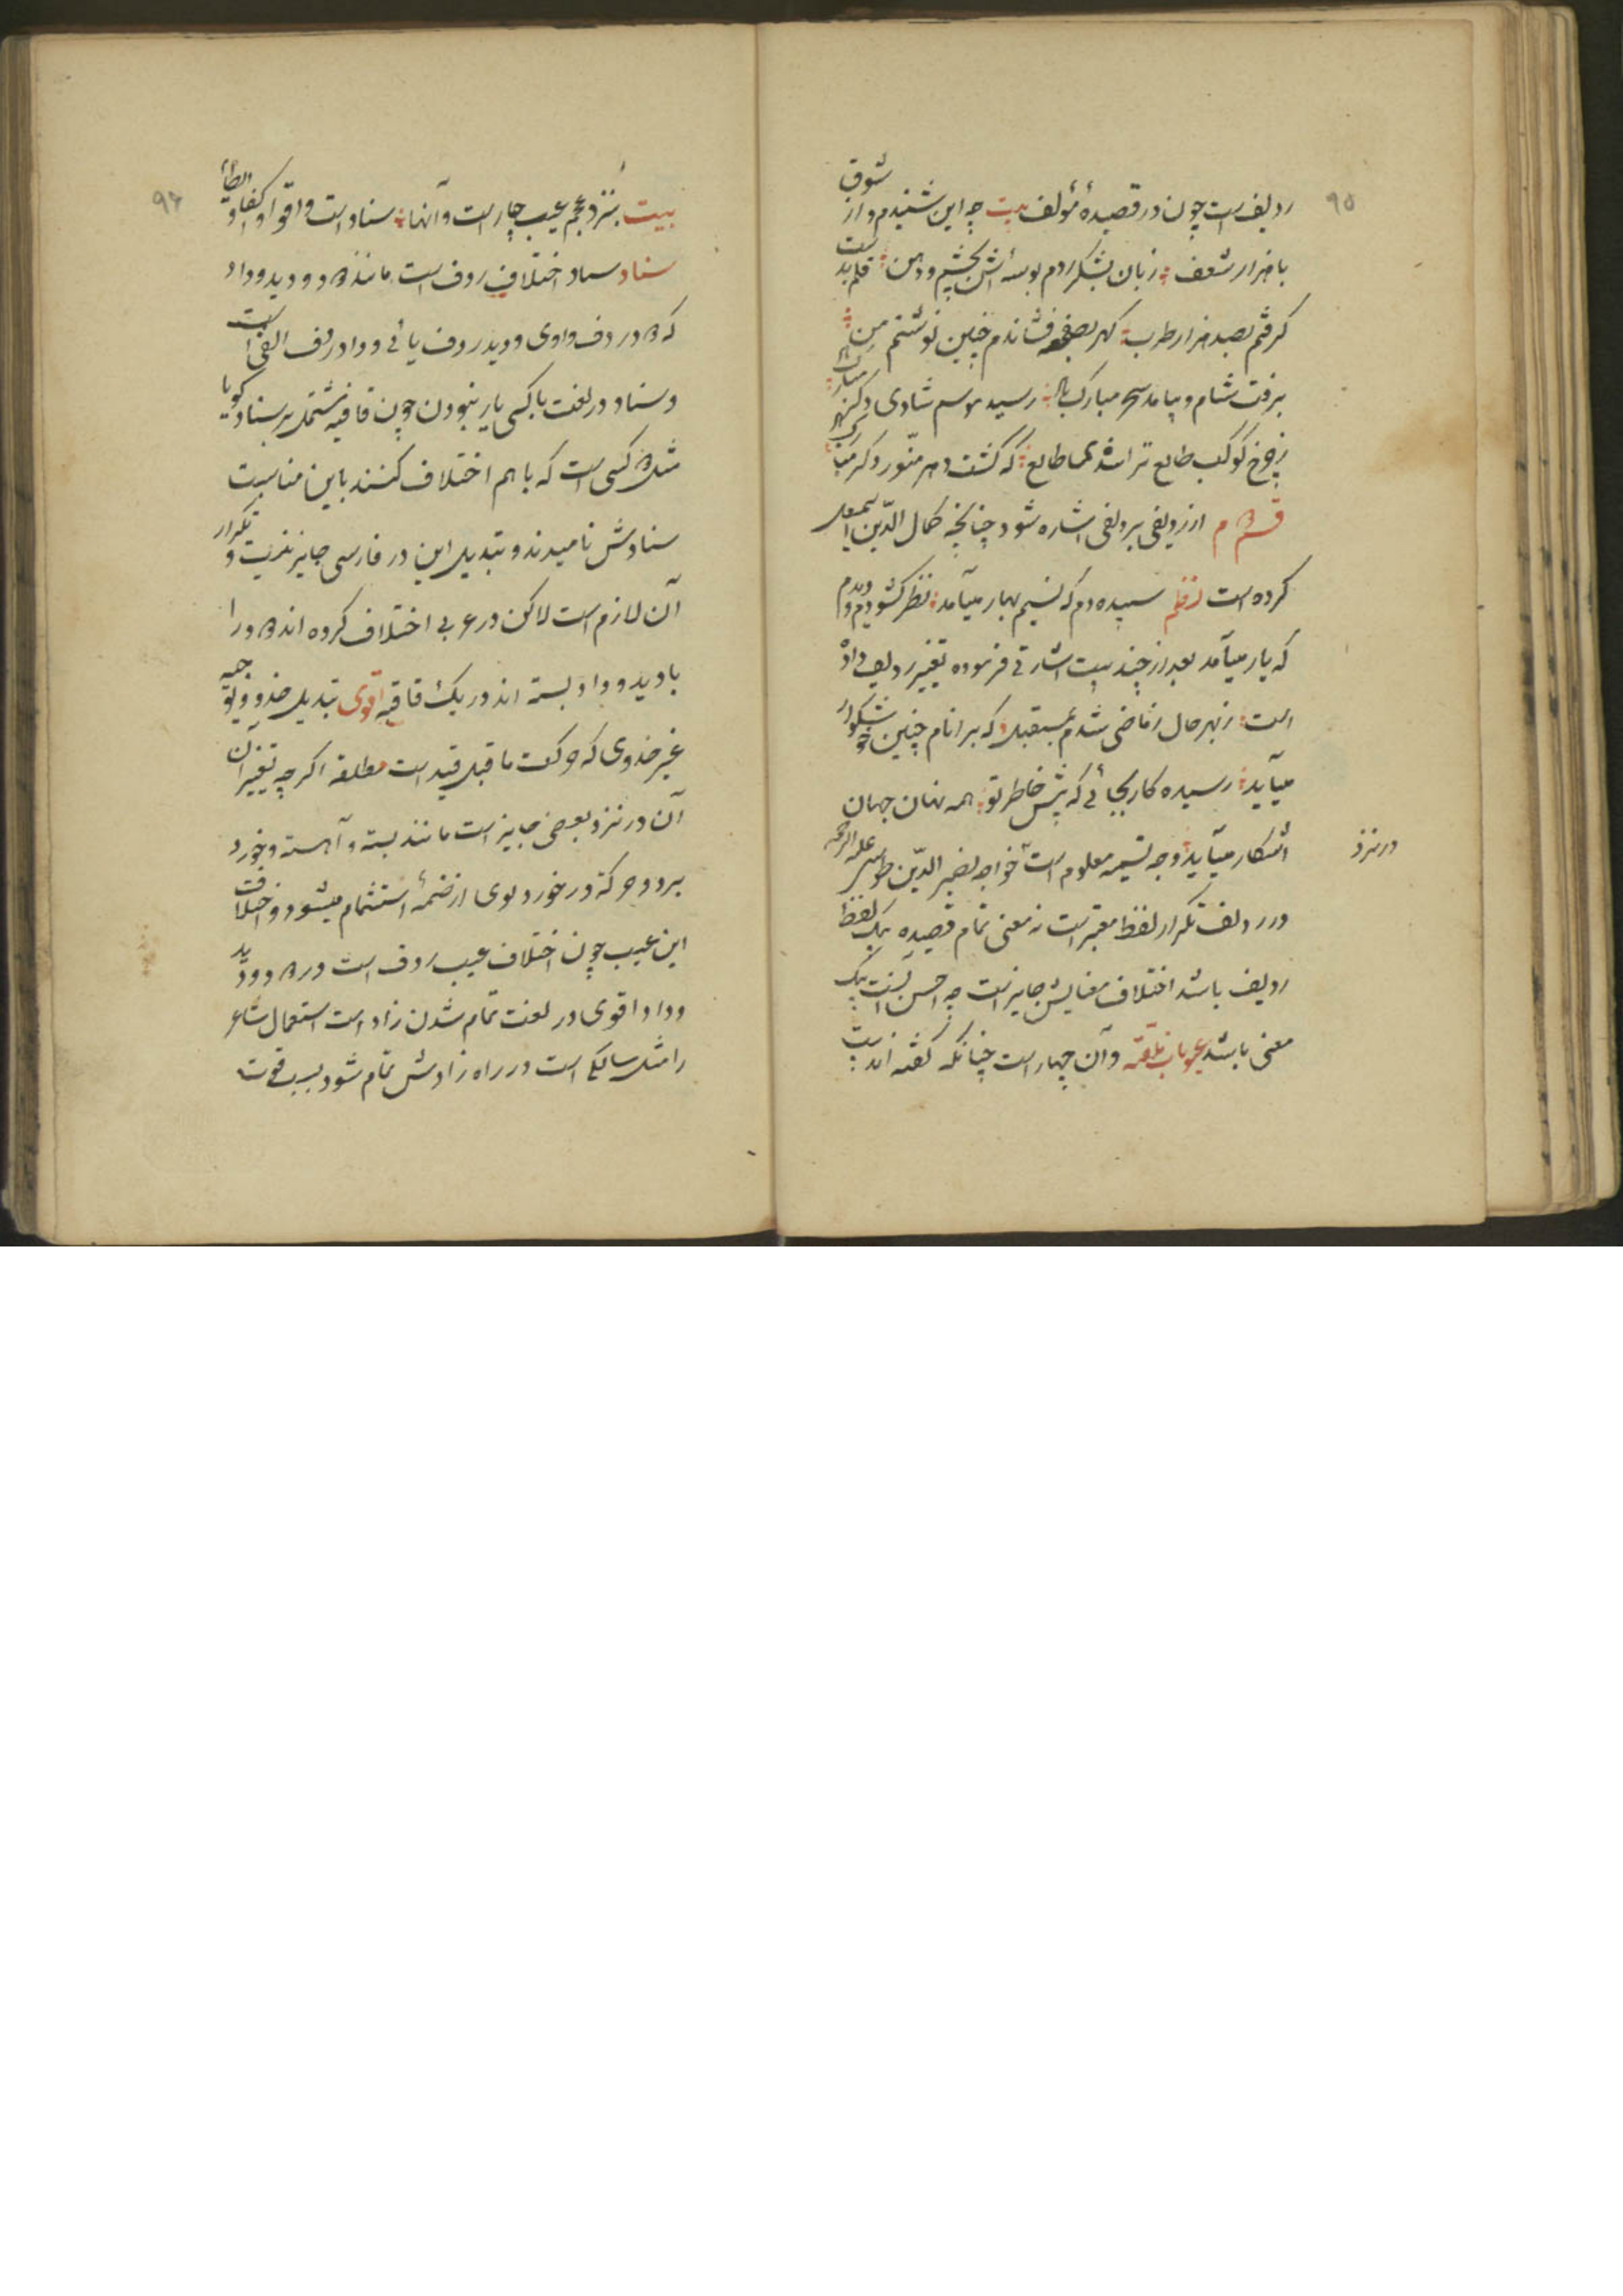 ۹۵
ردیف است چون در قصیدهٔ مؤلف بیت چه این شنیدم و از شوق
با هزار شعف زبان بشکر دم بوسه اش بچشم و دهن قلم بدست
گرفتم بصد هزار طرب گهر بصفحه فشاندم چنین نوشتم من
برفت شام و بیامد سحر مبارک باد رسید موسم شادی دگر مبارک
ز چرخ کوکب طالع ترا شد طالع که گشت دهر منور دگر
قسم دوم از ردیفی بردیفی اشاره شود چنانچه کمال الدّین اسمعیل
کرده است نظم سپیده دم که نسیم بهار میآمد نظر گشودم و دیدم
که یار میآمد بعد از چند بیت اشارتی فرموده تغییر ردیف داده
است ز بهر حال ز ماضی شدم بمستقبل که بر انام چنین خوشگوار
میآید رسیده کار بجائی که پیش خاطر تو همه نهان جهان
آشکار میآید وجه تسمیه معلوم است خواجه نصیر الدّین طوسی علیه الرحمه
در نزد
در ردیف تکرار لفظ معتبر است نه معنی تمام قصیده یک لفظ
ردیف باشد اختلاف معانیش جایز است چه احسن آنست یک
معنی باشد عیوبات قافیه و آن چهار است چنانکه گفته اند
۹۶
بیت بنزد عجم عیب چار است و آنها سناد است و اقوا و اکفا و ایطا
سناد سناد اختلاف ردف است مانند دود و دید و داد
که دود ردف واوی و دید ردف یائی و داد ردف الفی است
و سناد در لغت با کسی یار نبودن چون قافیه مشتمل بر سناد گویا
مثل دو کسی است که با هم اختلاف کنند باین مناسبت
سنادش نامیدند و تبدیل این در فارسی جایز نیست و تکرار
آن لازم است لاکن در عربی اختلاف کرده اند دود را
با دید و داد بسته اند در یک قافیه اقوی تبدیل حذو و توجیه
غیر حذوی که حرکت ما قبل قید است مطلقا اگر چه تغییر آن
آن در نزد بعضی جایز است مانند بسته و آهسته و خورد
برد و حرکة در خورد بوی از ضمهٔ استشمام میشود و اختلاف
این عیب چون اختلاف عیب ردف است در دود و دید
و داد اقوی در لغت تمام شدن زاد است استعمال شاعر
را مثل سالکی است در راه زادش تمام شود بسبب قوت